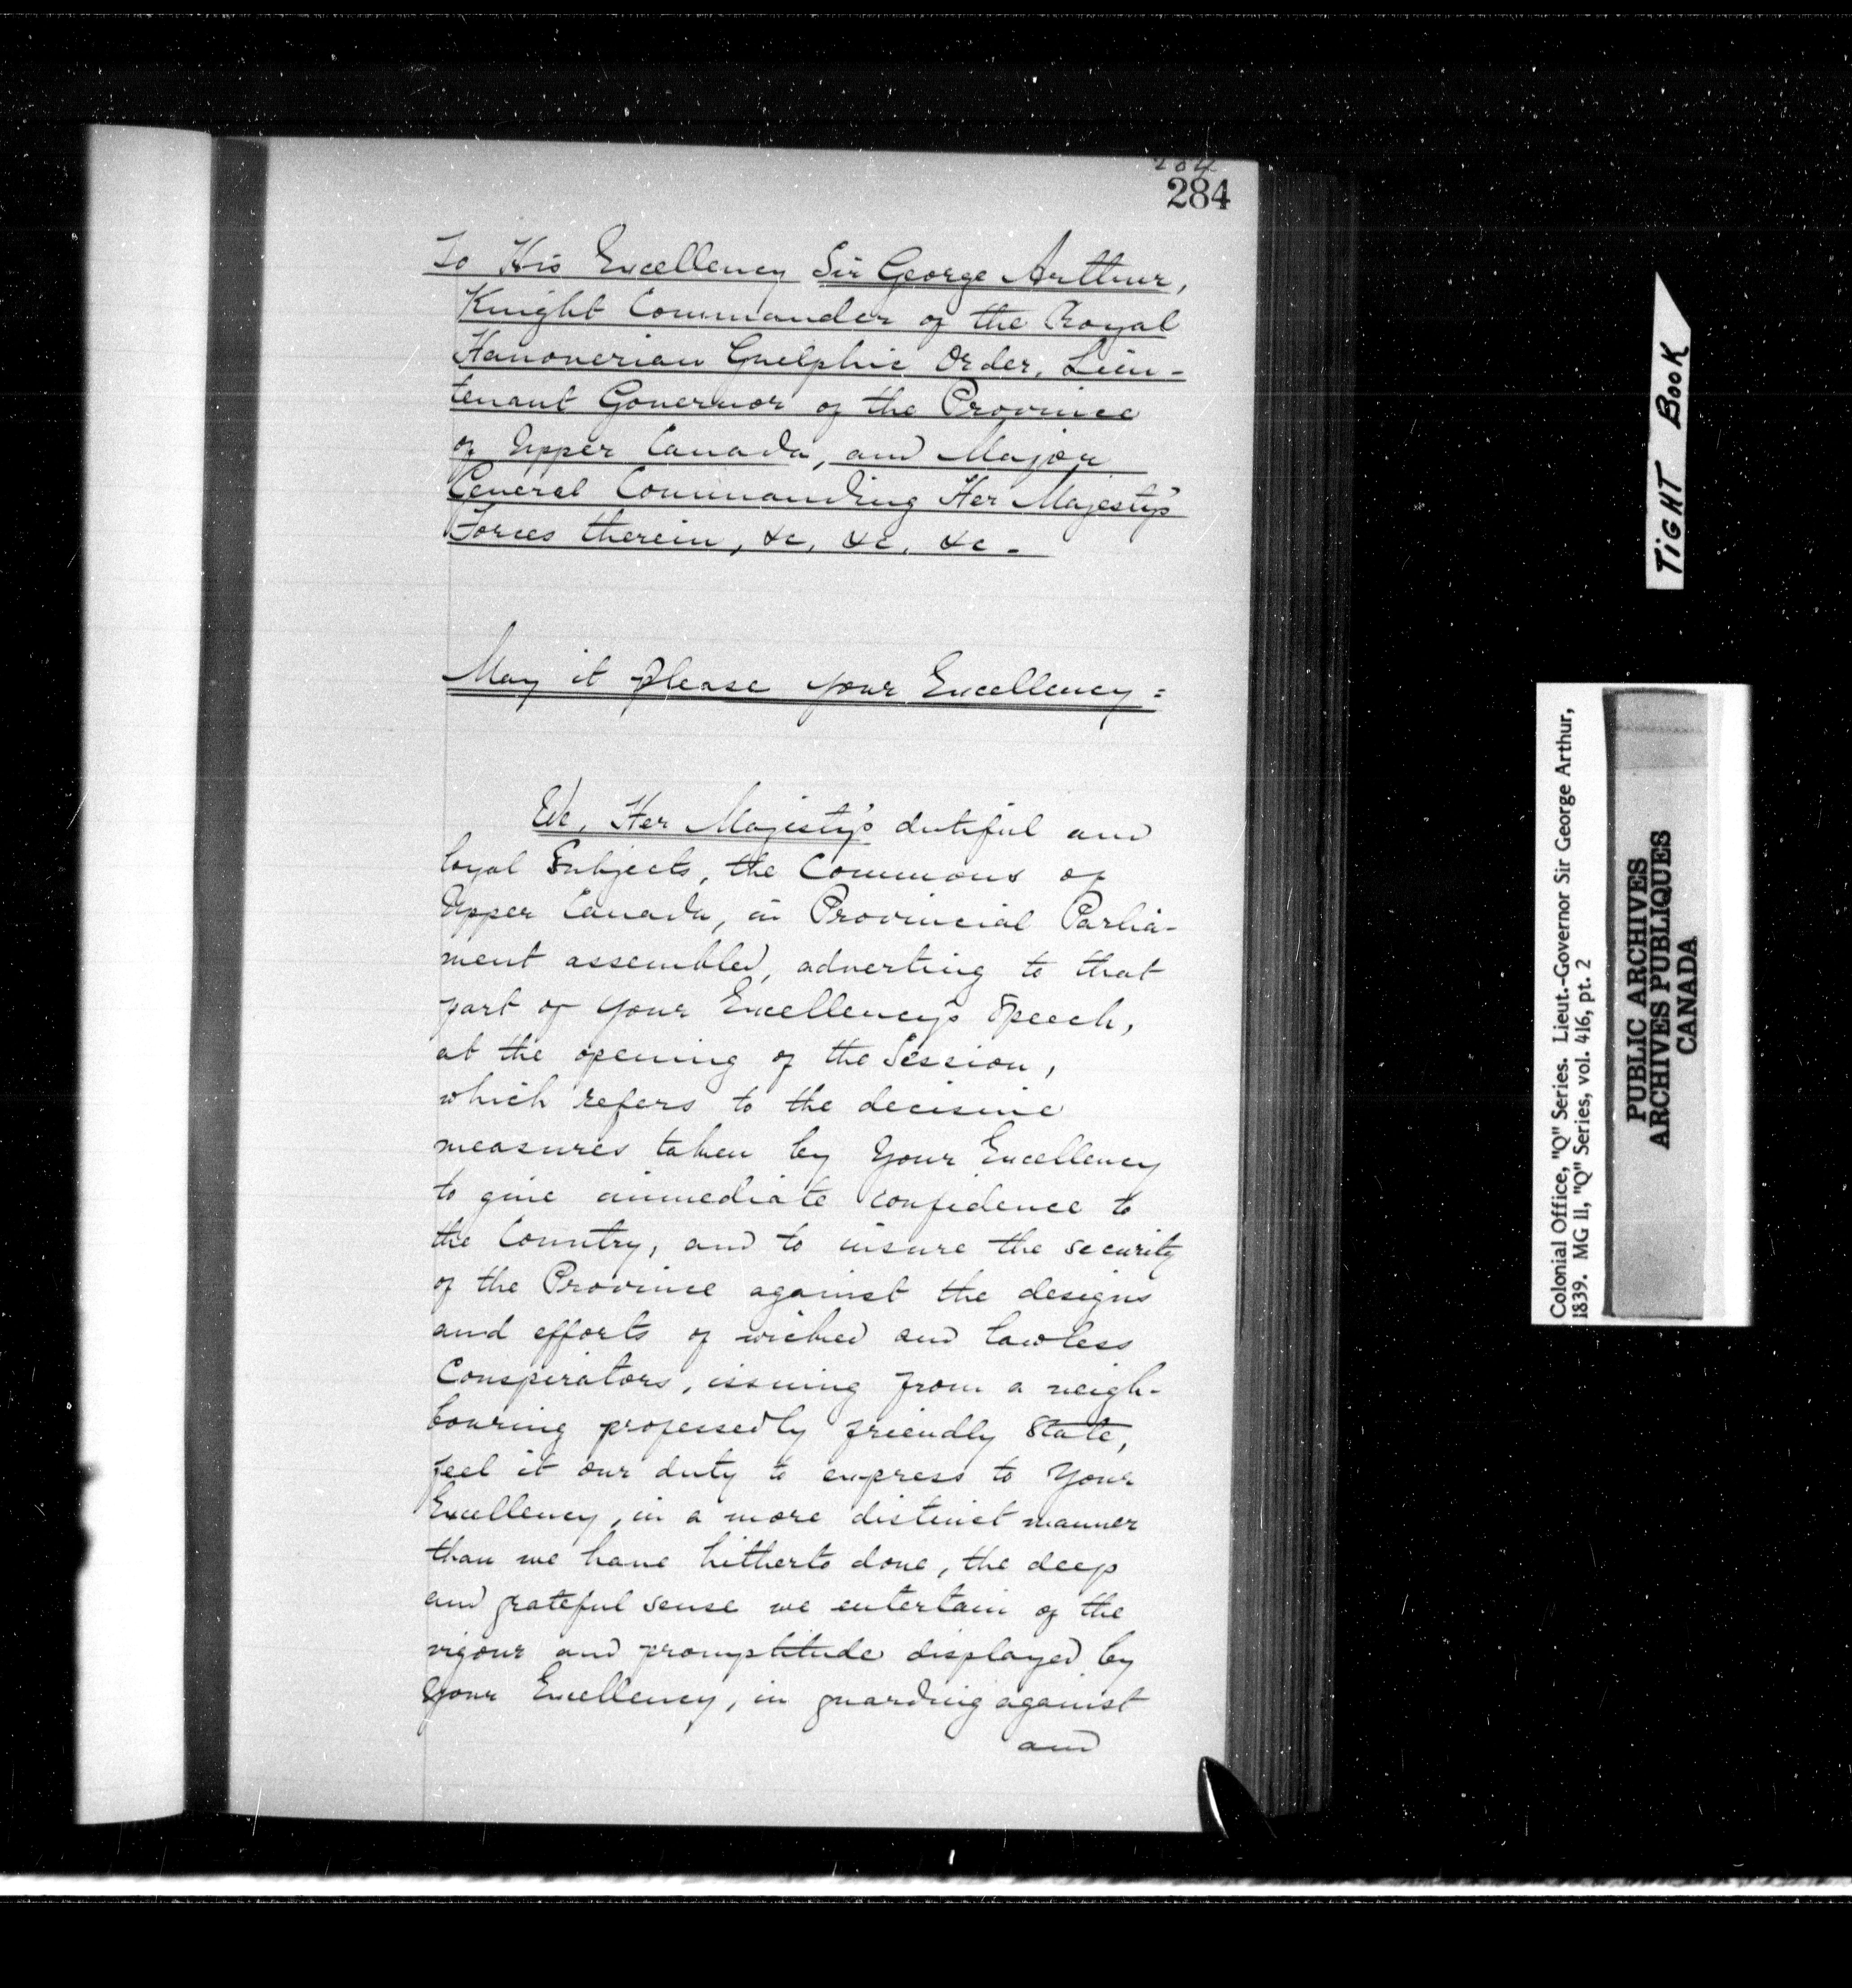 284
284
To His Excellency Sir George Arthur,
Knight Commander of the Royal
Hanoverian Guelphic Order, Lieu-
tenant Governor of the Province
of Upper Canada, and Major
General Commanding Her Majesty's
Forces therein, &c, &c, &c -
May it please your Excellency =
We, Her Majesty's dutiful and
loyal Subjects, the Commons of
Upper Canada, in Provincial Parlia-
ment assembled, adverting to that
part of your Excellency's Speech,
at the opening of the Session,
which refers to the decisive
measures taken by Your Excellency
to give immediate confidence to
the Country, and to insure the security
of the Province against the designs
and efforts of wicked and lawless
Conspirators, issuing from a neigh-
bouring professedly friendly State,
feel it our duty to express to Your
Excellency, in a more distinct manner
than we have hitherto done, the deep
and grateful sense we entertain of the
vigour and promptitude displayed by
Your Excellency, in guarding against
and
TIGHT BOOK
Colonial Office, "Q" Series. Lieut.-Governor Sir George Arthur,
1839. MG 11, "Q" Series, vol. 416, pt. 2
PUBLIC ARCHIVES
ARCHIVES PUBLIQUES
CANADA